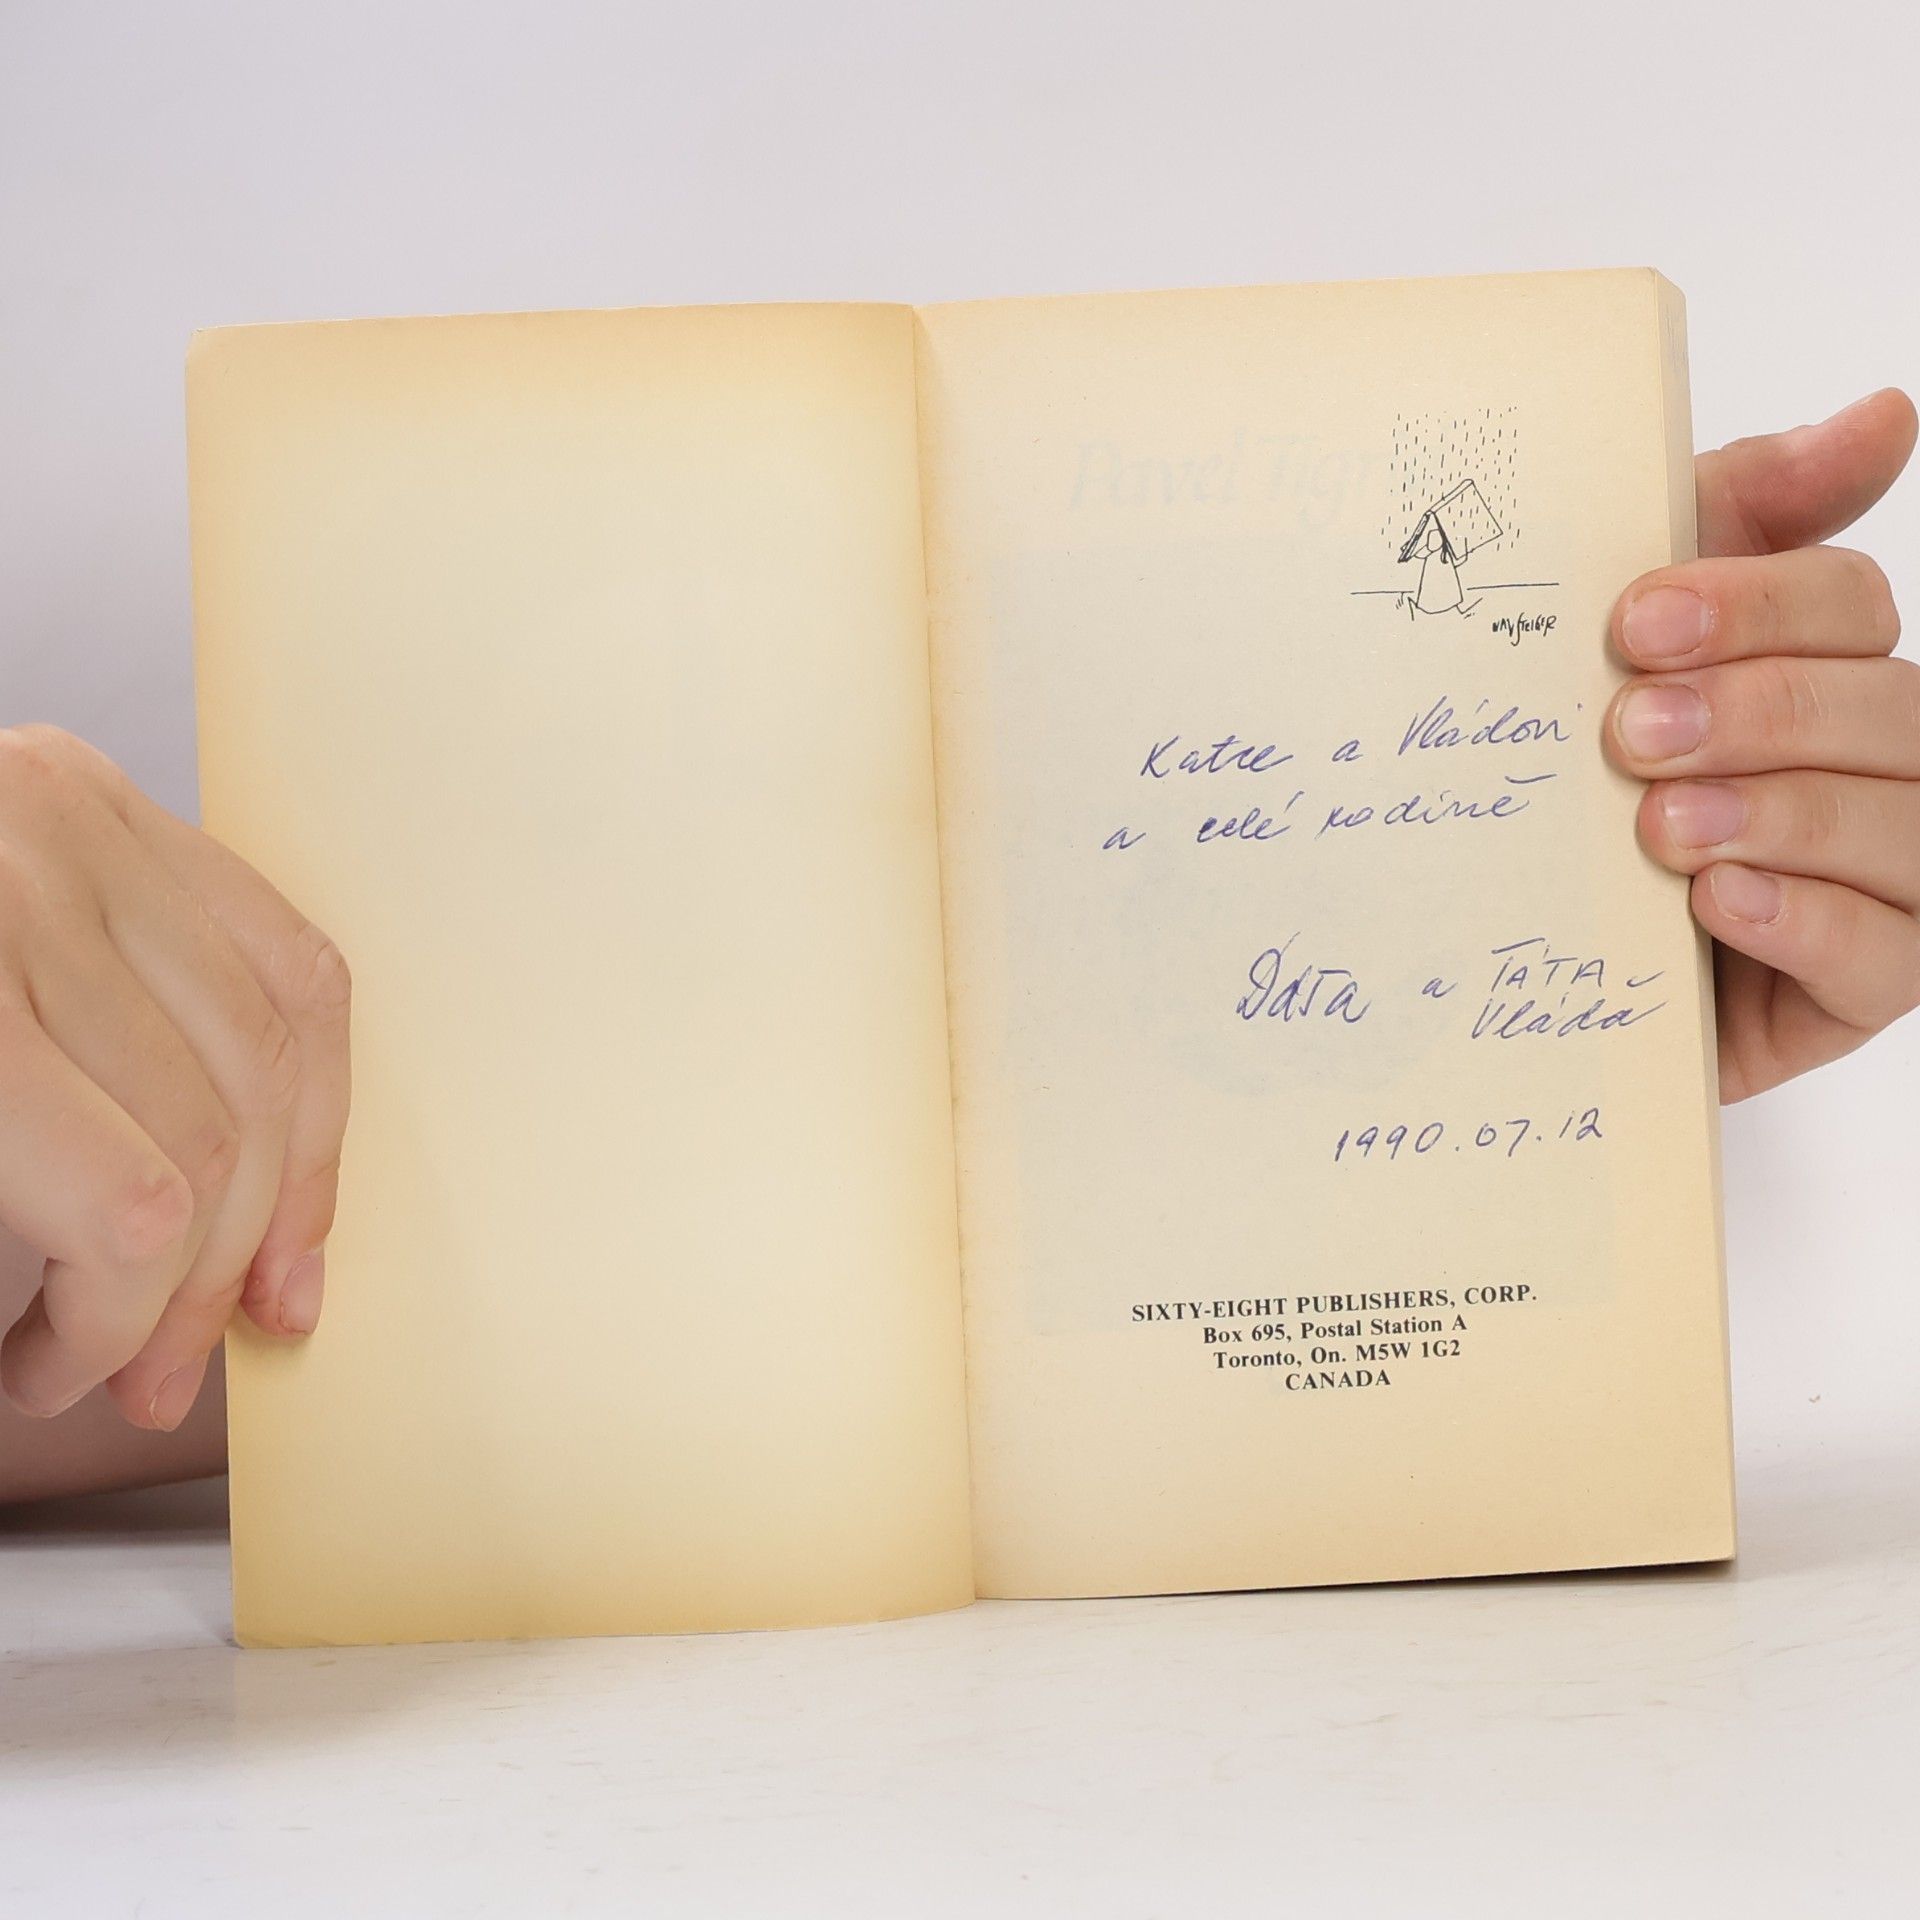 Pavel Tigr
Katce a Vláďovi
a celé rodině
Dáša a TÁTA
Vláďa
1990.07.12
SIXTY-EIGHT PUBLISHERS, CORP.
Box 695, Postal Station A
Toronto, On. M5W 1G2
CANADA